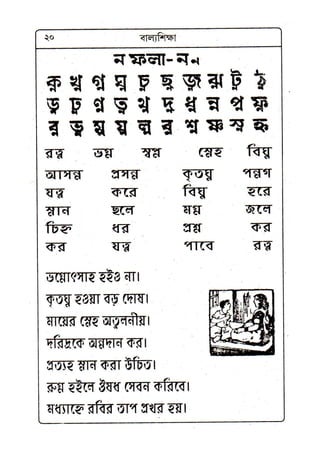 ২০ বাল্যশিক্ষা
ন ফলা - ন ্ন
ক্ন খ্ন গ্ন ঘ্ন চ্ন ছ্ন জ্ন ঝ্ন ট্ন ঠ্ন
ড্ন ঢ্ন ণ্ন ত্ন থ্ন দ্ন ধ্ন ন্ন প্ন ফ্ন
ব্ন ভ্ন ম্ন য্ন ল্ন ব্ন শ্ন ষ্ণ স্ন হ্ন
রত্ন ভগ্ন স্বপ্ন স্নেহ বিঘ্ন
আসন্ন প্রসন্ন কৃতঘ্ন পন্নগ
যত্ন করে বিঘ্ন হরে
স্নান ছলে মগ্ন জলে
চিহ্ন ধর প্রশ্ন কর
কর যত্ন পাবে রত্ন
ভগ্নোৎসাহ হইও না।
কৃতঘ্ন হওয়া বড় দোষ।
মায়ের স্নেহ অতুলনীয়।
দরিদ্রকে অন্নদান কর।
প্রত্যহ স্নান করা উচিত।
রুগ্ন হইলে ঔষধ সেবন করিবে।
মধ্যাহ্নে রবির তাপ প্রখর হয়।